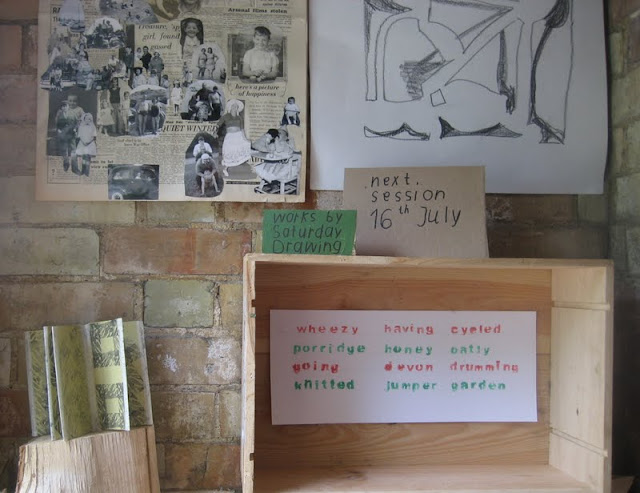 girl, found
gassed
here's a picture
of happiness
QUIET WINTER
next.
session
16th July
works by
Saturday
Drawing
wheezy having cycled
porridge honey oatly
going devon drumming
knitted jumper garden